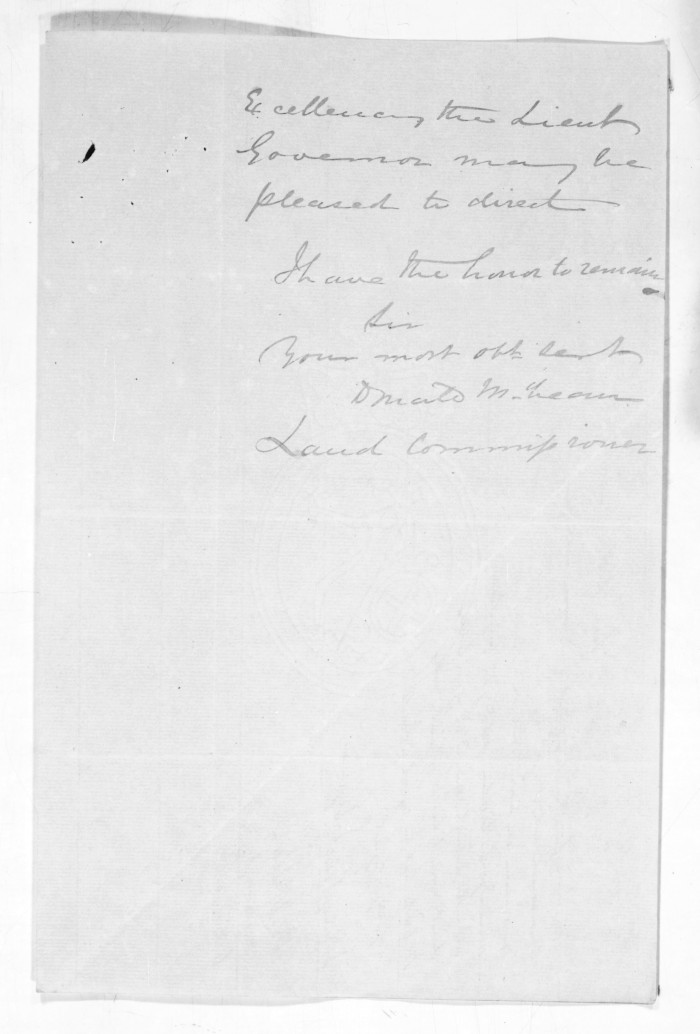 Excellency the Lieut
Governor may be
pleased to direct
I have the honor to remain
Sir
Your most obt servt
Donald McLean
Land Commissioner